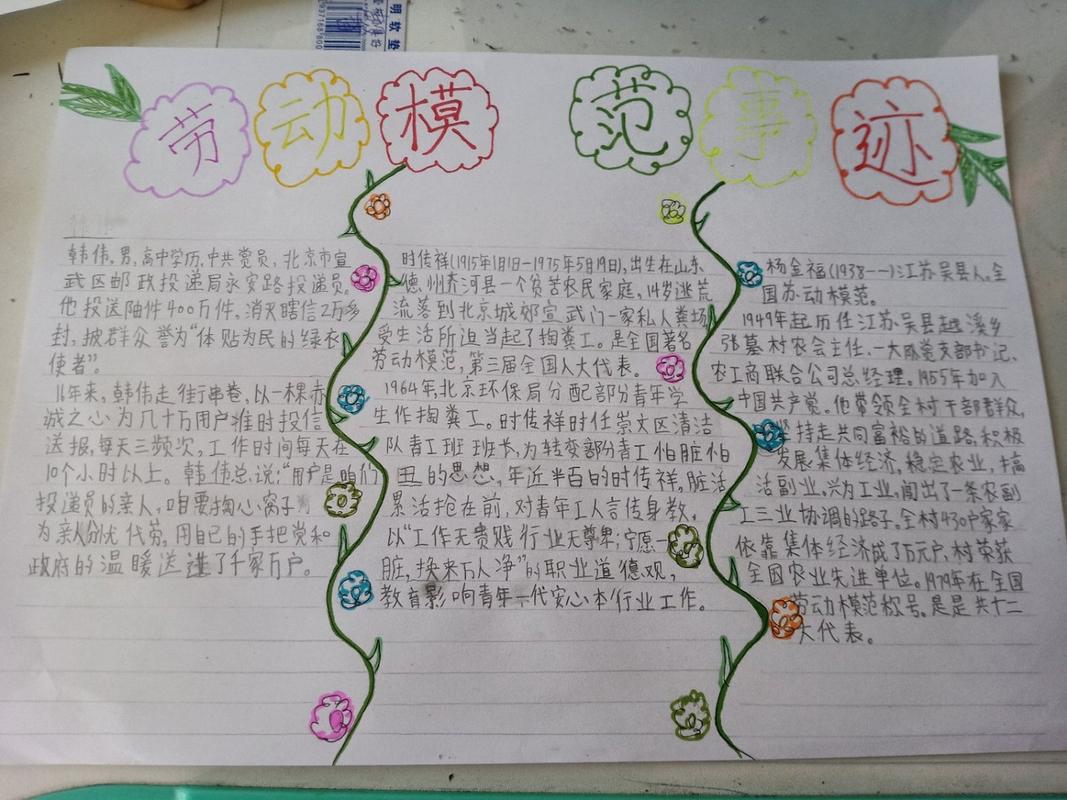 劳动模范事迹
韩伟,男,高中学历,中共党员,北京市宣
武区邮政投递局永安路投递员。
他投送邮件400万件,消灭瞎信2万多
封,被群众誉为“体贴为民的绿衣
使者”。
16年来,韩伟走街串巷,以一棵赤
诚之心为几十万用户准时投信
送报,每天三频次,工作时间每天在
10个小时以上。韩伟总说:“用户是咱们
投递员的亲人,咱要掏心窝子
为亲人分忧代劳,用自己的手把党和
政府的温暖送进了千家万户。
时传祥(1915年1月1日—1975年5月19日),出生在山东
德州齐河县一个贫苦农民家庭,14岁逃荒
流落到北京城郊宣武门一家私人粪场
受生活所迫当起了掏粪工。是全国著名
劳动模范,第三届全国人大代表。
1964年,北京环保局分配部份青年学
生作掏粪工。时传祥时任崇文区清洁
队青工班班长,为转变部份青工怕脏怕
丑的思想,年近半百的时传祥,脏活
累活抢在前,对青年工人言传身教,
以“工作无贵贱行业无尊卑;宁愿一
脏,换来万人净”的职业道德观,
教育影响青年一代安心本行业工作。
杨金福(1938——)江苏吴县人,全
国劳动模范。
1949年起历任江苏吴县越溪乡
张墓村农会主任、一大队党支部书记、
农工商联合公司总经理。1955年加入
中国共产党。他带领全村干部群众,
持走共同富裕的道路,积极
发展集体经济,稳定农业,搞
活副业,兴为工业,闯出了一条农副
工三业协调的路子。全村430户家家
依靠集体经济成了万元户,村荣获
全国农业先进单位。1979年在全国
劳动模范称号。是是共十二
大代表。